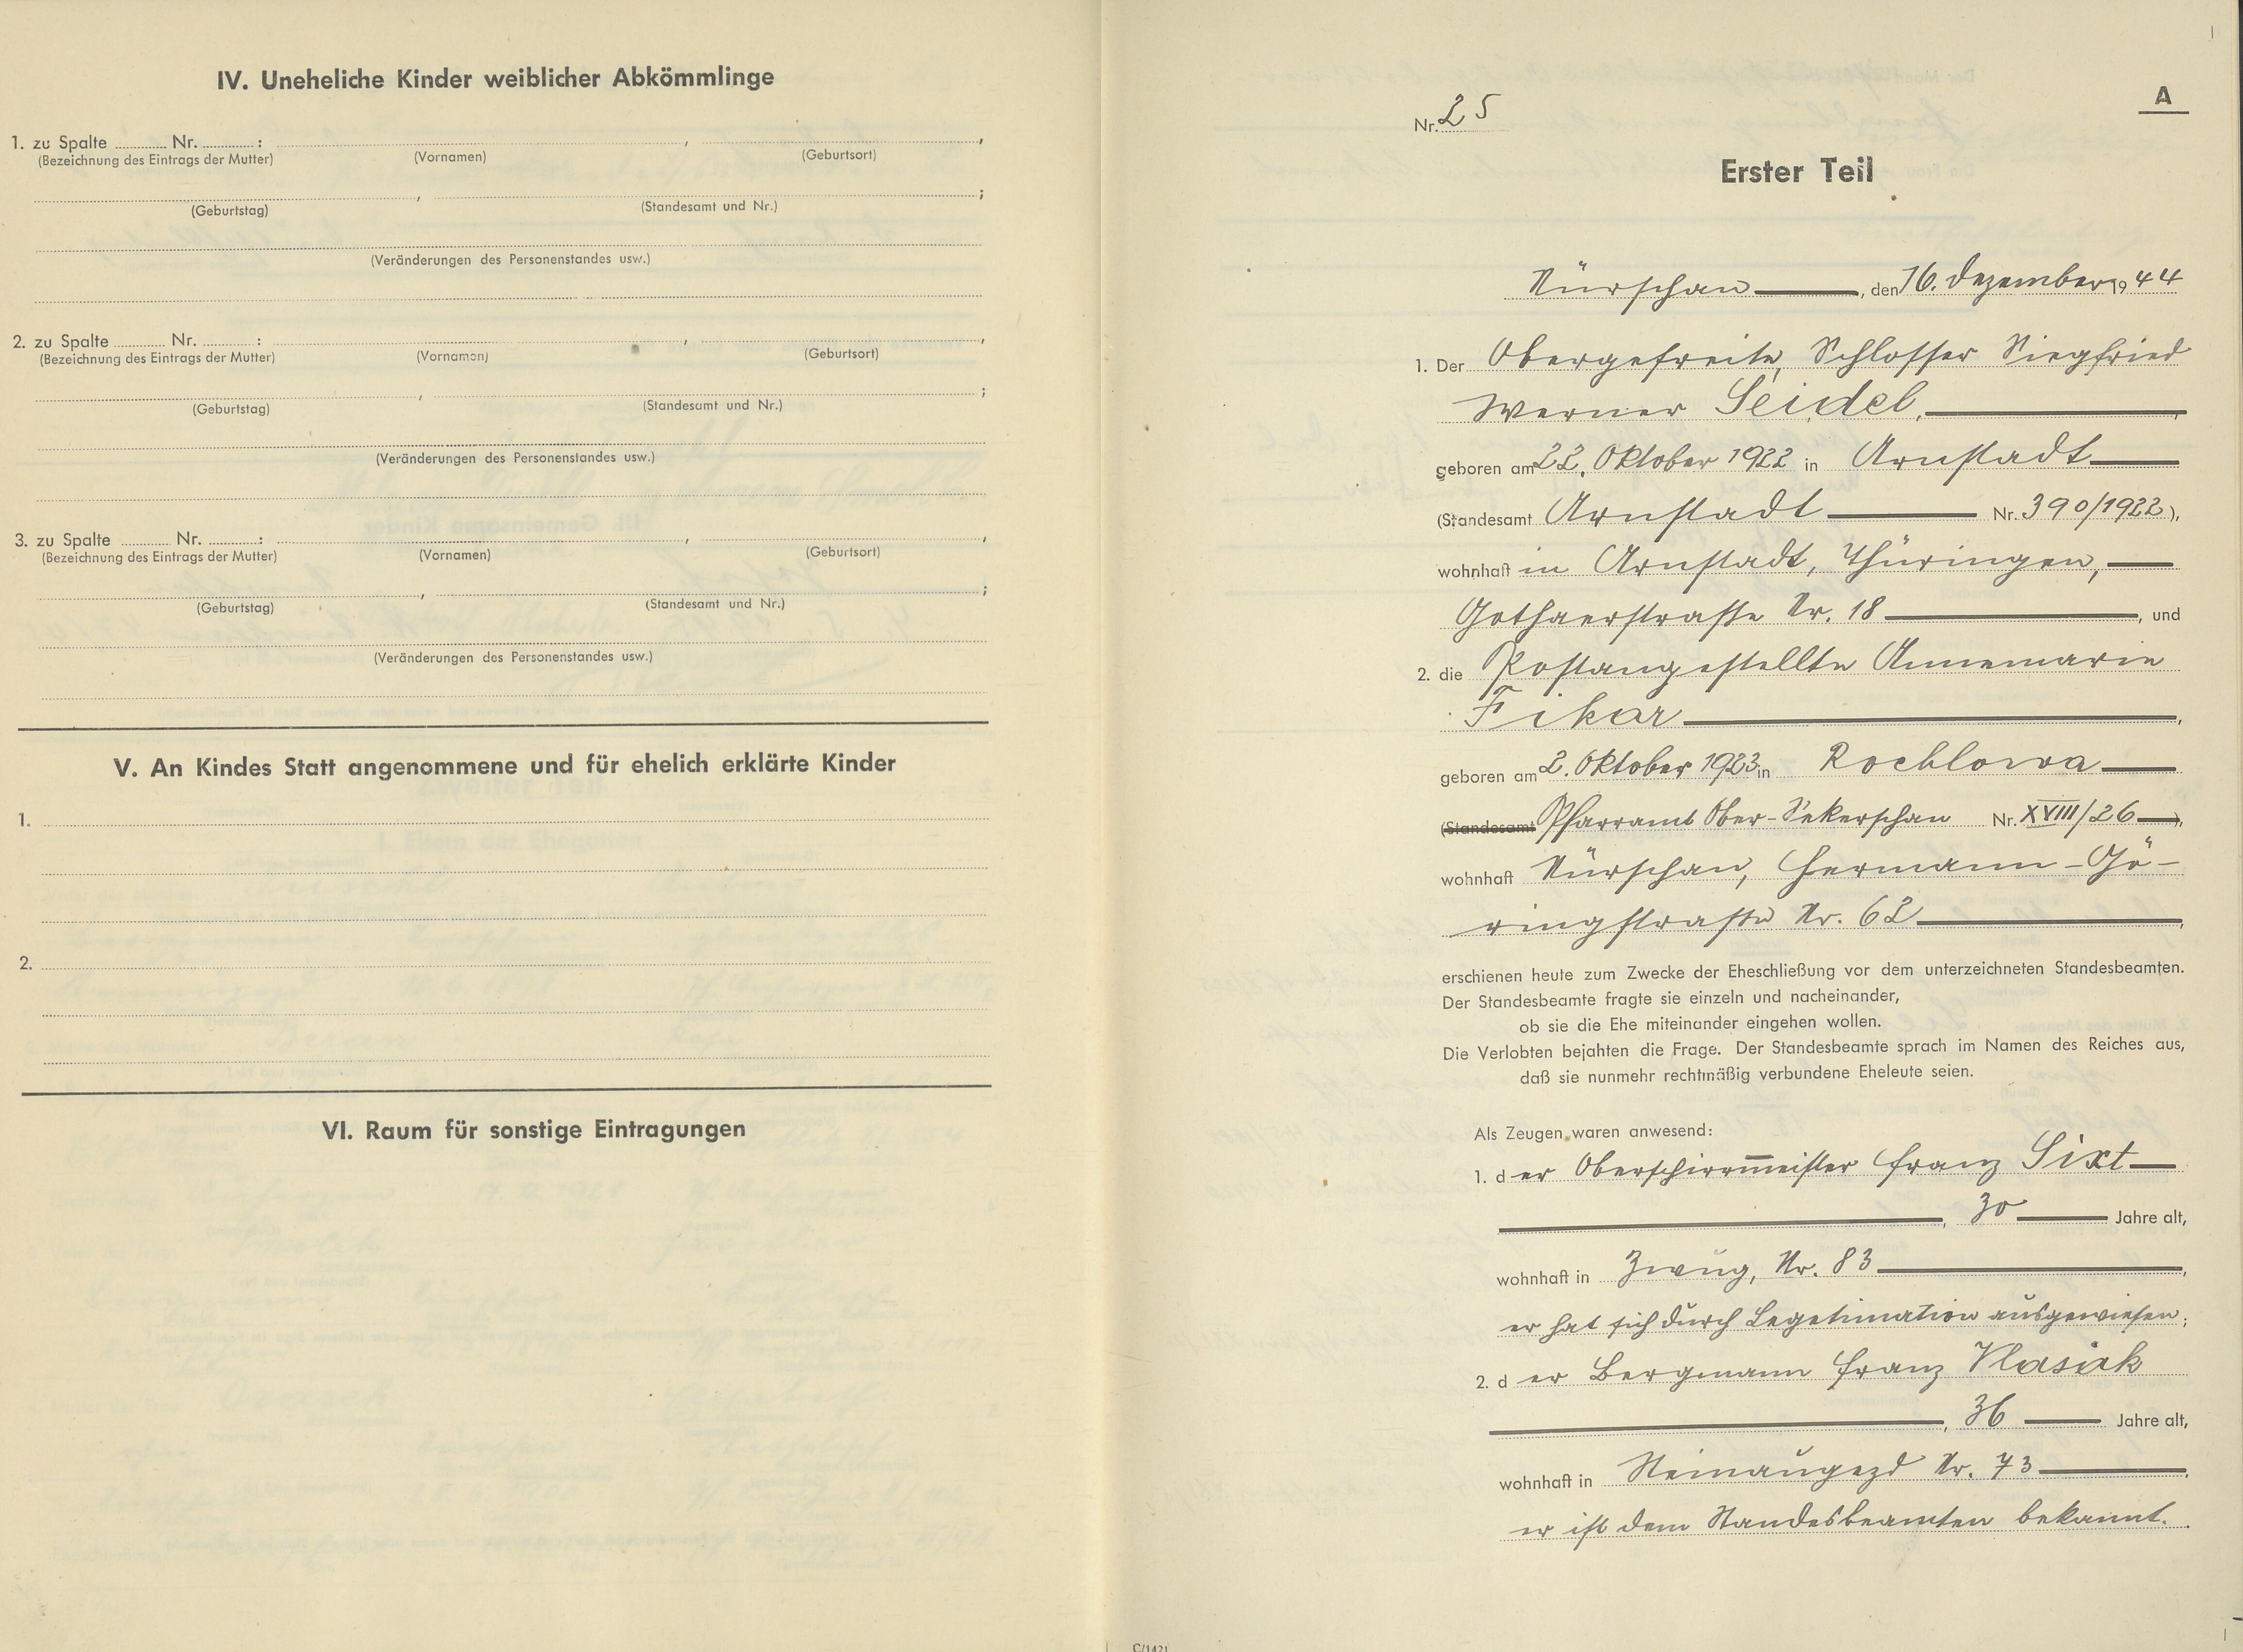 IV. Uneheliche Kinder weiblicher Abkömmlinge
1. zu Spalte ............ Nr. ............ : , ,
(Bezeichnung des Eintrags der Mutter) (Vornamen) (Geburtsort)
, ;
(Geburtstag) (Standesamt und Nr.)
(Veränderungen des Personenstandes usw.)
2. zu Spalte ............ Nr. ............ : , ,
(Bezeichnung des Eintrags der Mutter) (Vornamen) (Geburtsort)
, ;
(Geburtstag) (Standesamt und Nr.)
(Veränderungen des Personenstandes usw.)
3. zu Spalte ............ Nr. ............ : , ,
(Bezeichnung des Eintrags der Mutter) (Vornamen) (Geburtsort)
, ;
(Geburtstag) (Standesamt und Nr.)
(Veränderungen des Personenstandes usw.)
V. An Kindes Statt angenommene und für ehelich erklärte Kinder
1.
2.
VI. Raum für sonstige Eintragungen
A
Nr. 25
Erster Teil
Nürschan, den 16. Dezember 1944
1. Der Obergefreite, Schlosser Siegfried
Werner Seidel,
geboren am 22. Oktober 1922 in Arnstadt
(Standesamt Arnstadt Nr. 390/1922),
wohnhaft in Arnstadt, Thüringen,
Gothaerstrasse Nr. 18, und
2. die Postangestellte Annemarie
Fikar,
geboren am 2. Oktober 1923 in Rochlowa
(Standesamt Pfarramt Ober-Sekerschan Nr. XVIII/26),
wohnhaft Nürschan, Hermann-Gö-
ringstrasse Nr. 62,
erschienen heute zum Zwecke der Eheschließung vor dem unterzeichneten Standesbeamten.
Der Standesbeamte fragte sie einzeln und nacheinander,
ob sie die Ehe miteinander eingehen wollen.
Die Verlobten bejahten die Frage. Der Standesbeamte sprach im Namen des Reiches aus,
daß sie nunmehr rechtmäßig verbundene Eheleute seien.
Als Zeugen waren anwesend:
1. der Oberschirrm̅eister Franz Sixt
, 30 Jahre alt,
wohnhaft in Zwug, Nr. 83,
er hat sich durch Legetimation ausgewiesen;
2. der Bergmann Franz Vlasak
, 36 Jahre alt,
wohnhaft in Steinaugezd Nr. 73,
er ist dem Standesbeamten bekannt.
C/1421